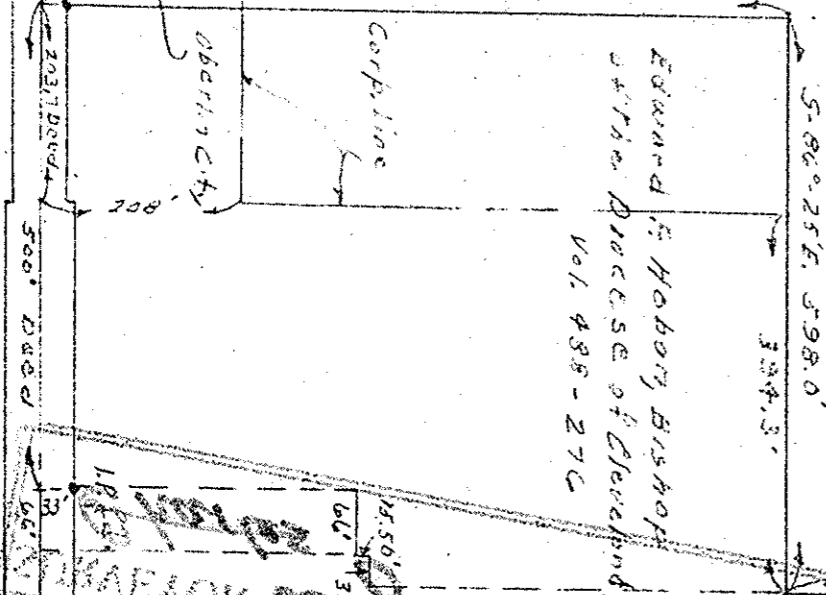 S-86°-25'E. 598.0'
394.3'
Edward F. Hoban, Bishop
of the Diocese of Cleveland
Vol. 488-276
Corp. line
Oberlin City
208'
203.7 Deed
500' Deed
15.50'
66'
33'
66'
3